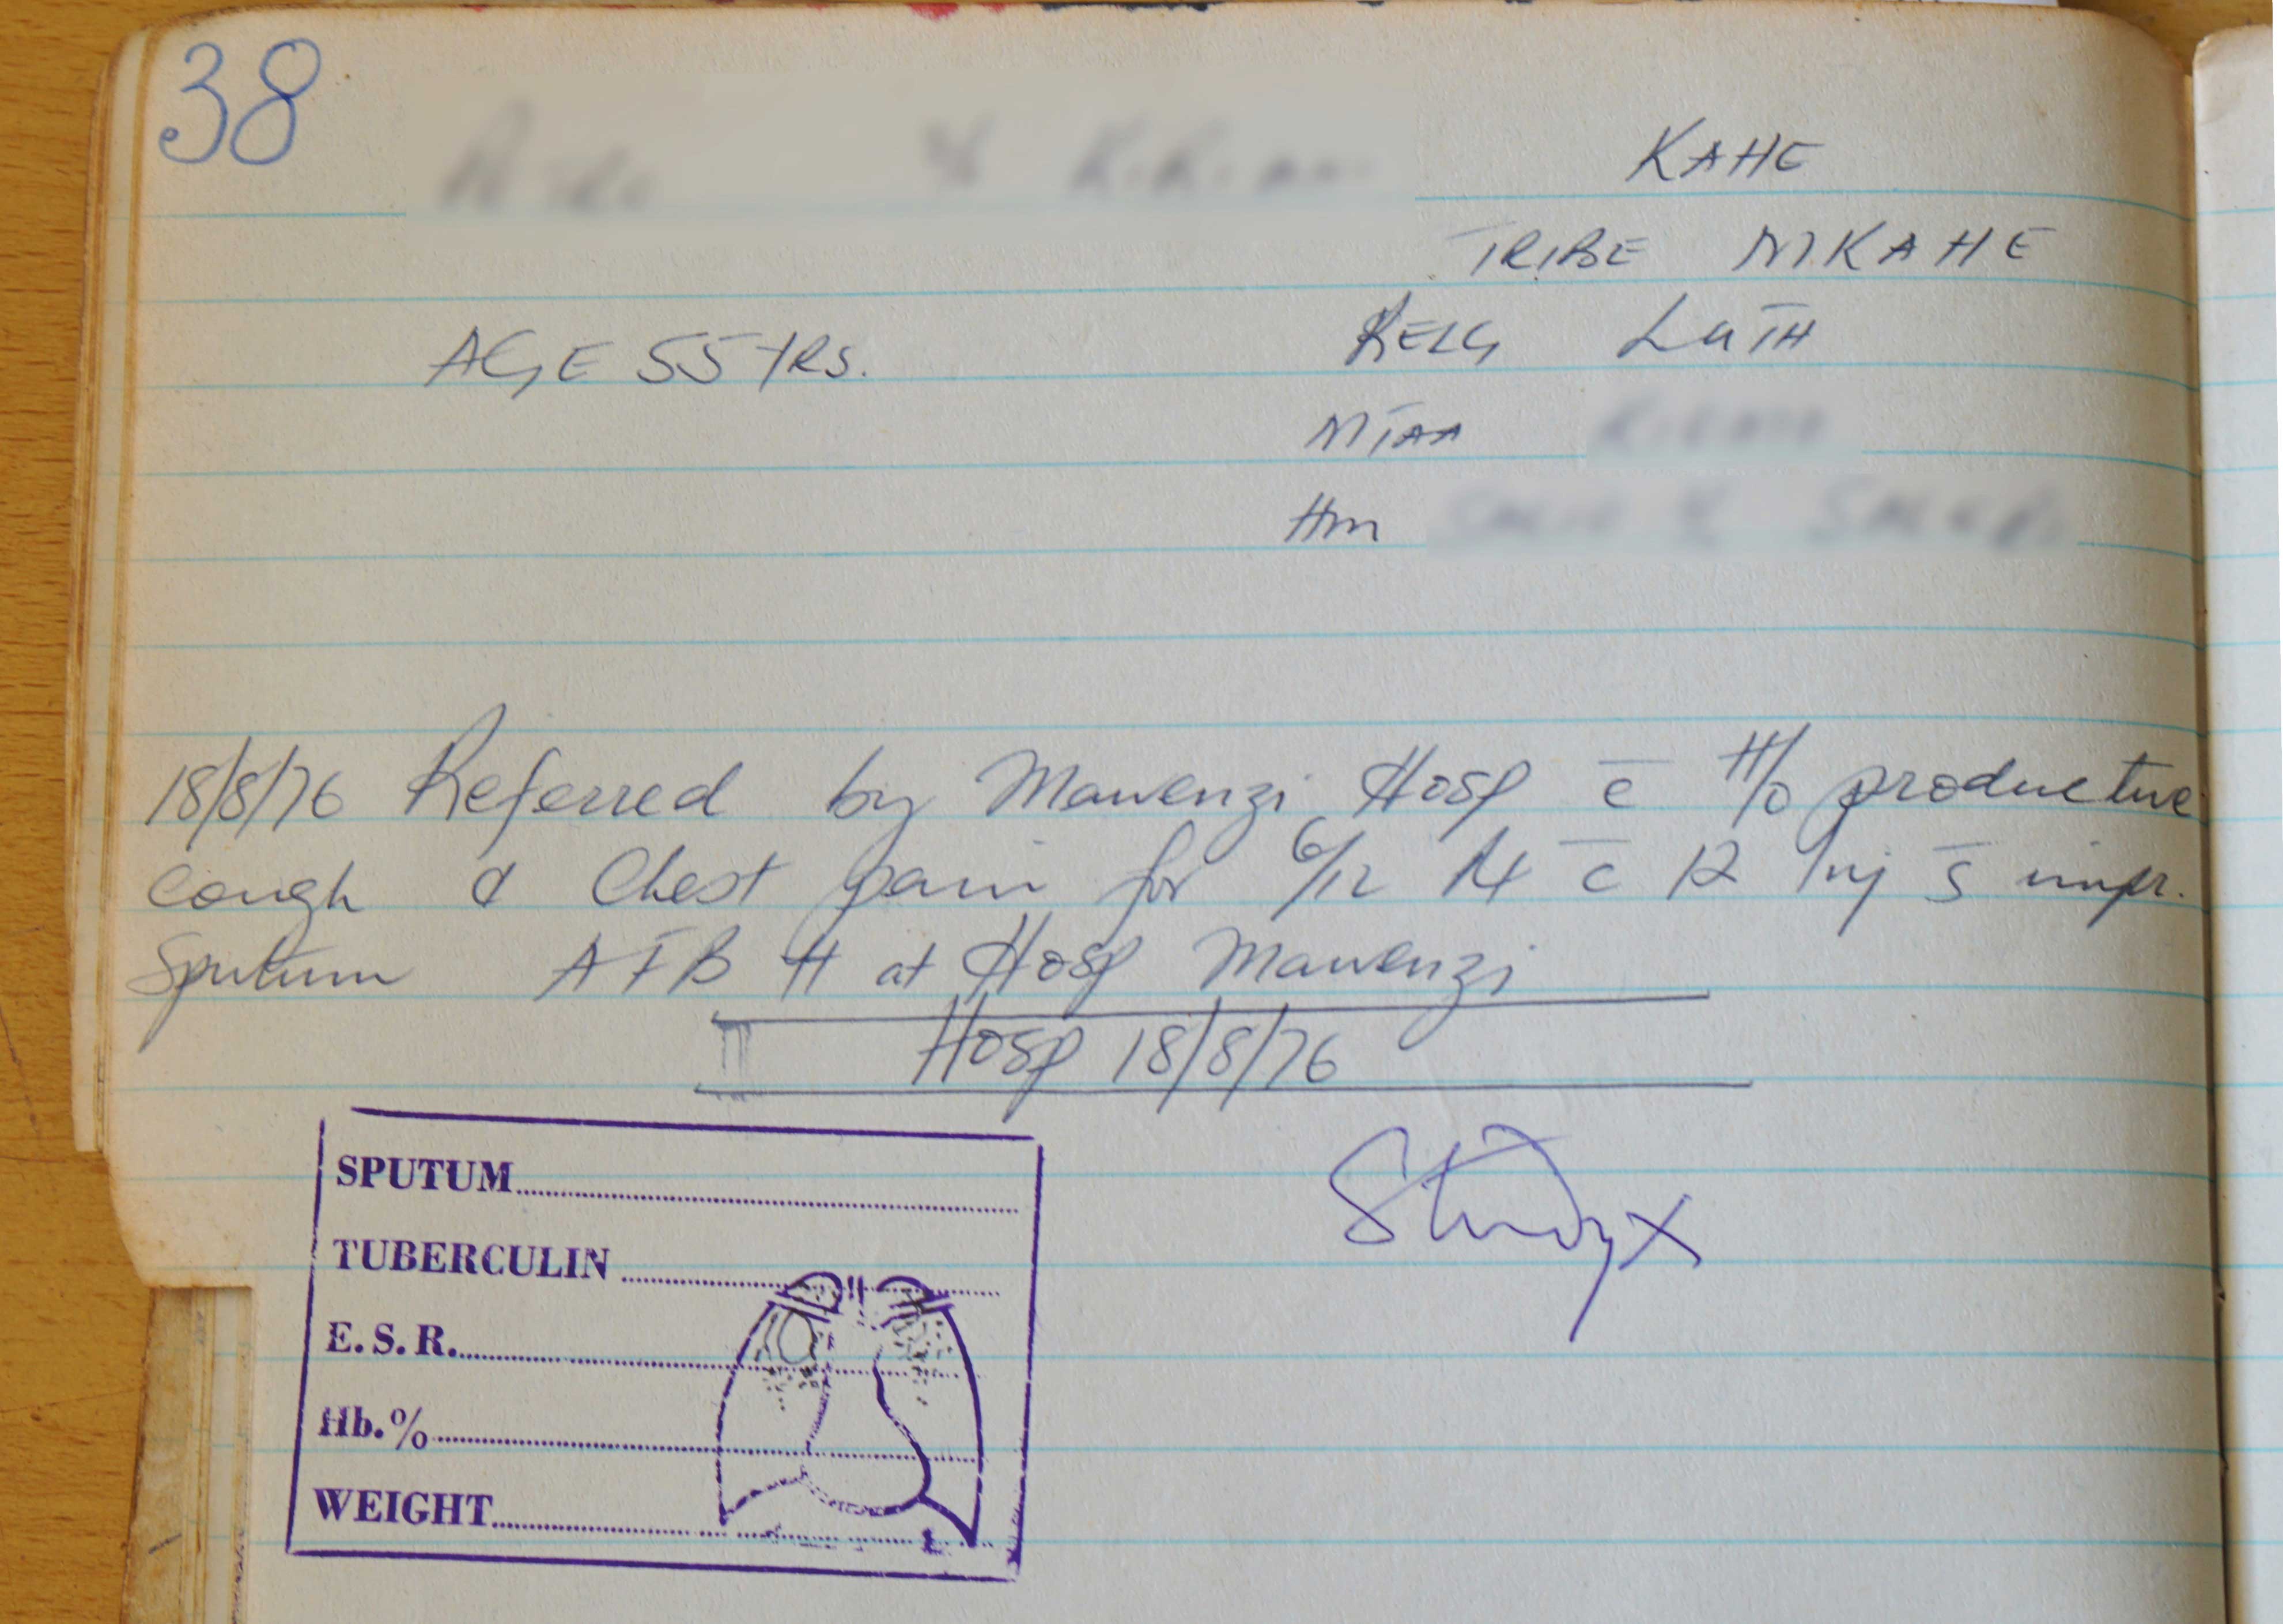 38
KAHE
TRIBE MKAHE
AGE 55 YRS. RELG LUTH
MTAA
Hm
18/8/76 Referred by Mawenzi Hosp c̄ H/o productive
cough & Chest pain for 6/12 c̄ 12 Inj s̄ impr.
Sputum AFB # at Hosp Mawenzi
Hosp 18/8/76
SPUTUM
TUBERCULIN
E. S. R.
Hb. %
WEIGHT